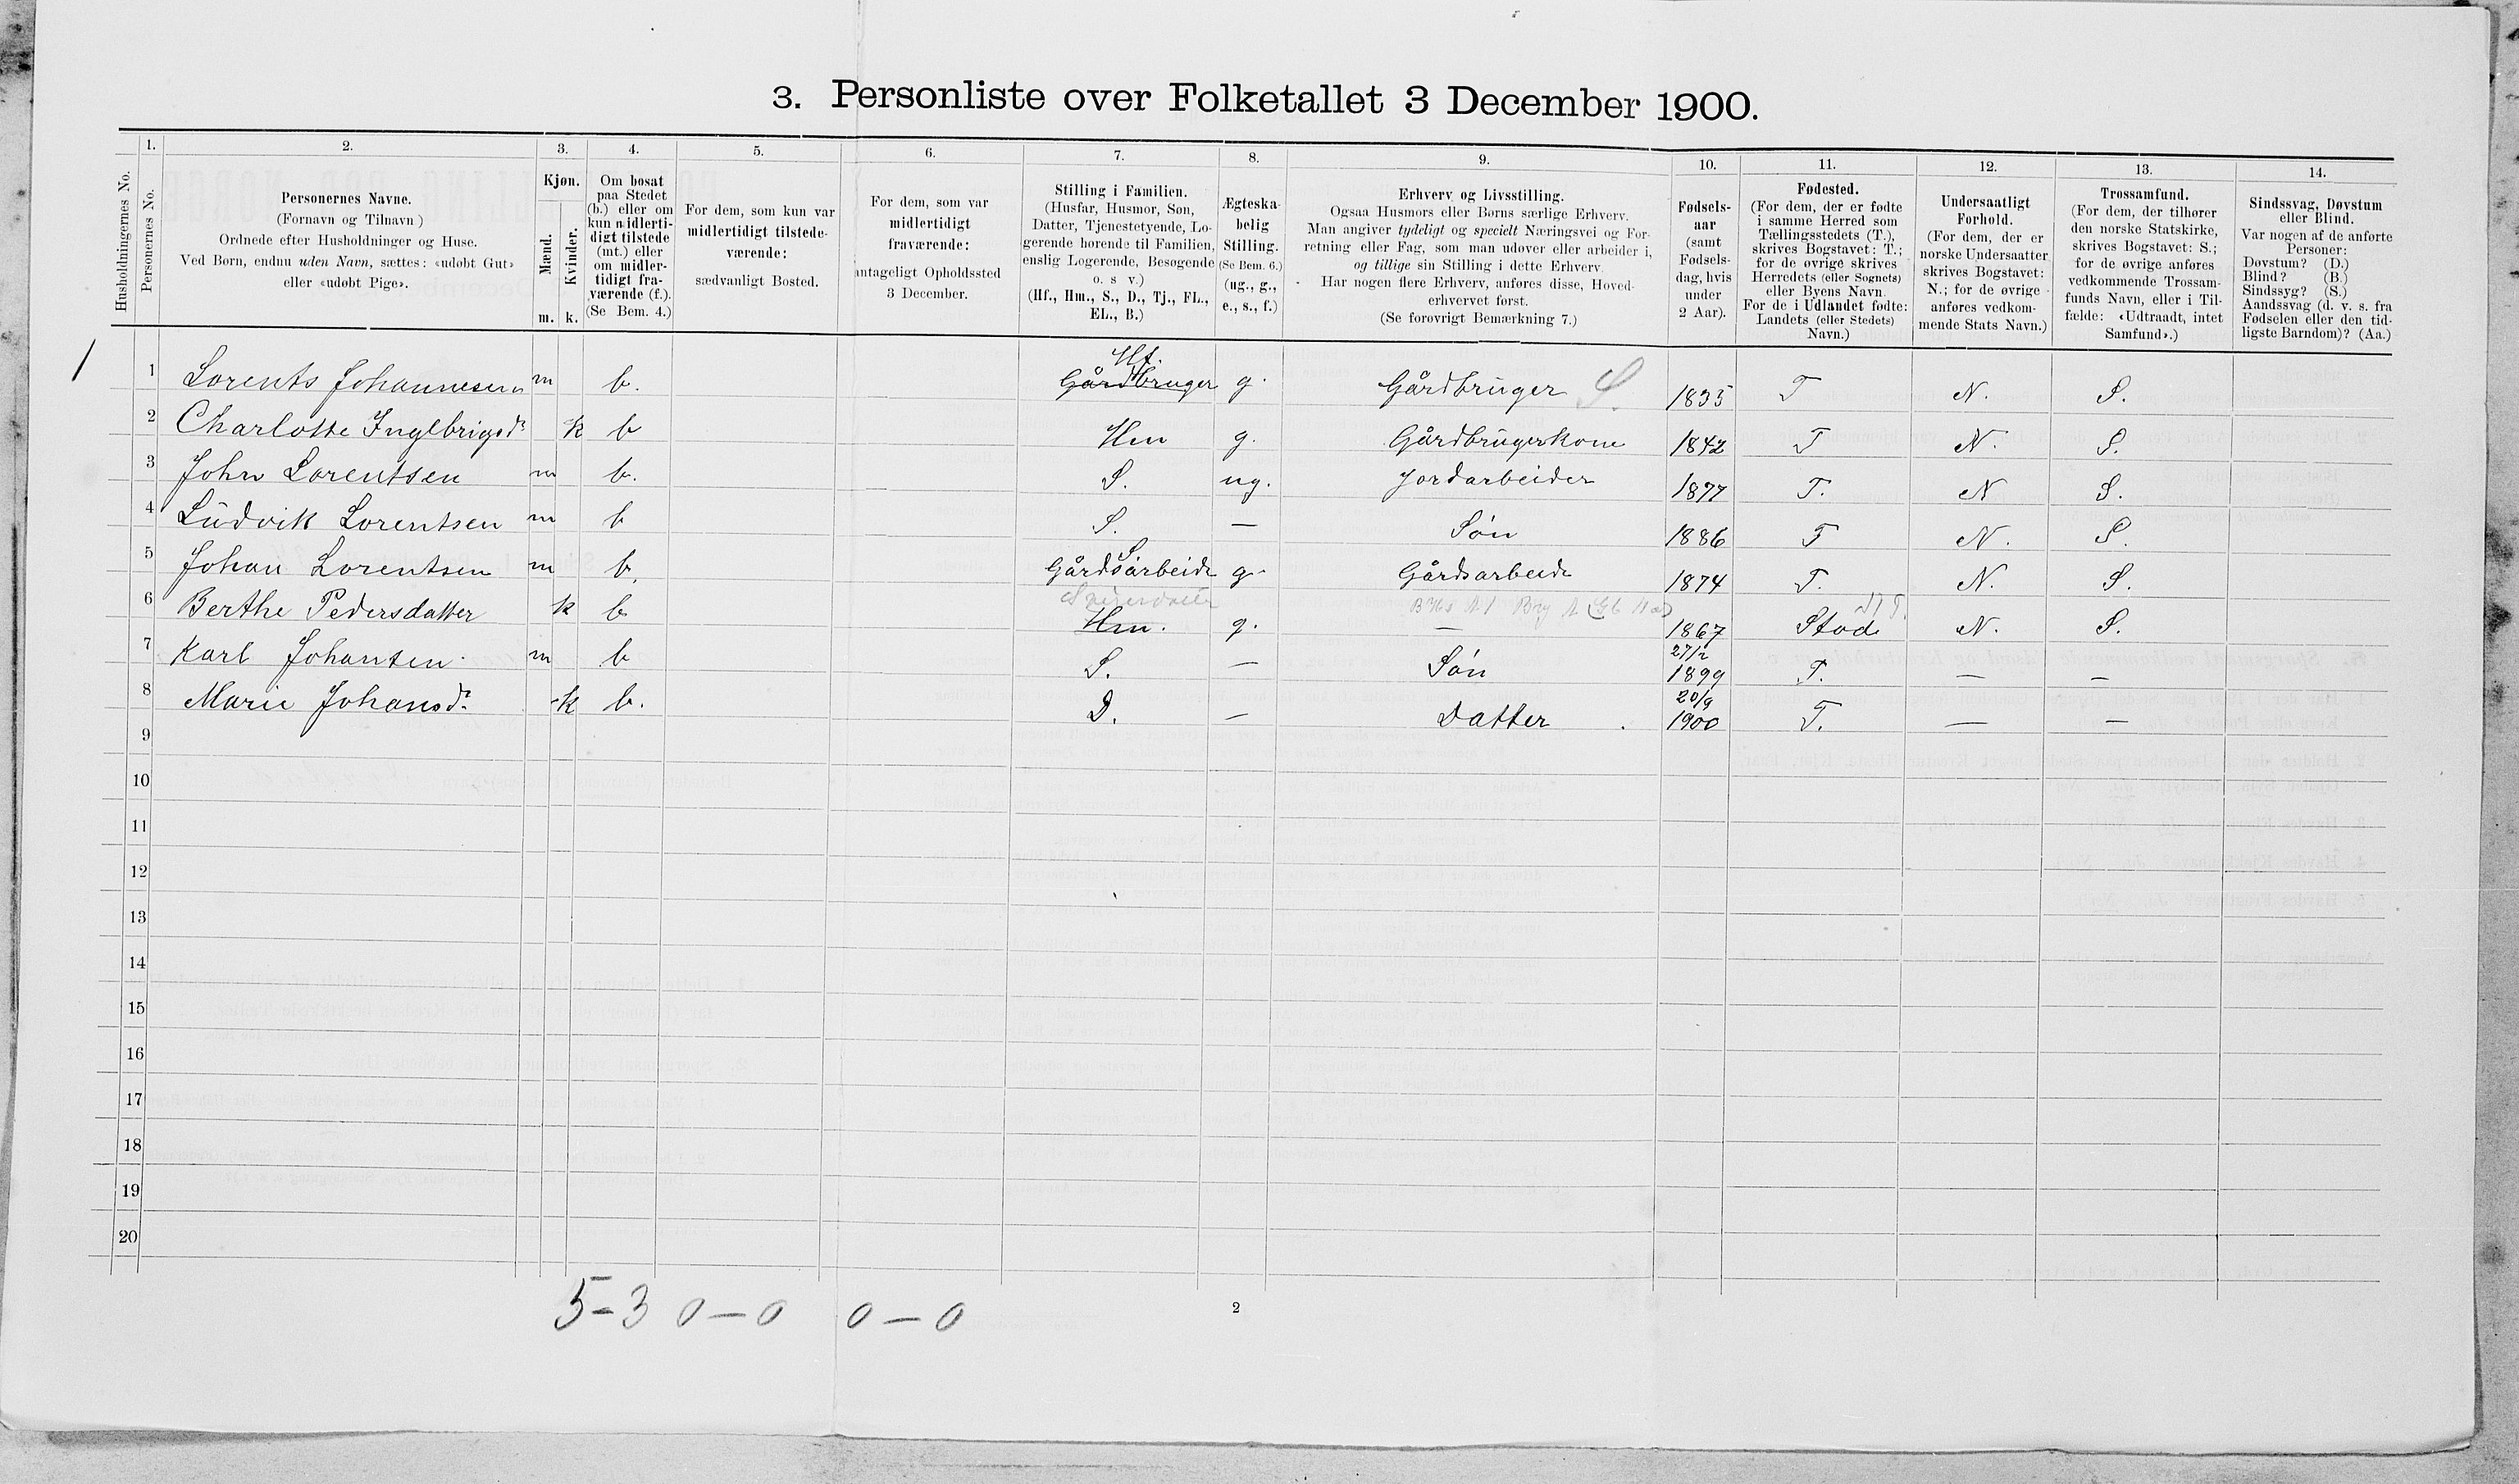 3. Personliste over Folketallet 3 December 1900.
1. 2. 3. 4. 5. 6. 7. 8. 9. 10. 11. 12. 13. 14.
Husholdningernes No.
Personernes No.
Personernes Navne.
(Fornavn og Tilnavn )
Ordnede efter Husholdninger og Huse.
Ved Børn, endnu uden Navn, sættes: «udøbt Gut»
eller «udøbt Pige».
Kjøn.
Mænd.
Kvinder.
m. k.
Om bosat
paa Stedet
(b.) eller om
kun midlerti-
digt tilstede
(mt.) eller
om midler-
tidigt fra-
værende (f.).
(Se Bem. 4.)
For dem, som kun var
midlertidigt tilstede-
værende:
sædvanligt Bosted.
For dem, som var
midlertidigt
fraværende:
antageligt Opholdssted
3 December.
Stilling i Familien.
(Husfar, Husmor, Søn,
Datter, Tjenestetyende, Lo-
gerende hørende til Familien,
enslig Logerende, Besøgende
o. s v.)
(Hf., Hm., S., D., Tj., FL.,
EL., B.)
Ægteska-
belig
Stilling.
(Se Bem. 6.)
(ug., g.,
e., s., f.)
Erhverv og Livsstilling.
Ogsaa Husmors eller Børns særlige Erhverv.
Man angiver tydeligt og specielt Næringsvei og For-
retning eller Fag, som man udøver eller arbeider i,
og tillige sin Stilling i dette Erhverv.
Har nogen flere Erhverv, anføres disse, Hoved-
erhvervet først.
(Se forøvrigt Bemærkning 7.)
Fødsels-
aar
(samt
Fødsels-
dag, hvis
under
2 Aar).
Fødested.
(For dem, der er fødte
i samme Herred som
Tællingsstedets (T.),
skrives Bogstavet: T.;
for de øvrige skrives
Herredets (eller Sognets)
eller Byens Navn.
For de i Udlandet fødte:
Landets (eller Stedets)
Navn.)
Undersaatligt
Forhold.
(For dem, der er
norske Undersaatter
skrives Bogstavet:
N.; for de øvrige
anføres vedkom-
mende Stats Navn.)
Trossamfund.
(For dem, der tilhører
den norske Statskirke,
skrives Bogstavet: S.;
for de øvrige anføres
vedkommende Trossam-
funds Navn, eller i Til-
fælde: «Udtraadt, intet
Samfund».)
Sindssvag, Døvstum
eller Blind.
Var nogen af de anførte
Personer:
Døvstum? (D.)
Blind? (B.)
Sindssyg? (S.)
Aandssvag (d. v. s. fra
Fødselen eller den tid-
ligste Barndom)? (Aa.)
Hf.
1 Lorents Johannesen m b. Gårdbruger g. Gårdbruger S. 1835 T N. S.
2 Charlotte Ingebrigsdr k b Hm g. Gårdbrugerkone 1842 T N. S.
3 John Lorentsen m b. S. ug. Jordarbeider 1877 T. N S.
4 Ludvik Lorentsen m b S. — Søn 1886 T N. S.
S
5 Johan Lorentsen m b. Gårdsarbeide g. Gårdsarbeide 1874 T. N. S.
6 Berthe Pedersdatter k b Hm. g. — 1867 Stod N. S.
27/2
7 Karl Johansen m b S. — Søn 1899 T. — —
20/9
8 Marie Johansdr k b. D. — Datter 1900 T. — —
9
10
11
12
13
14
15
16
17
18
19
20
5-3 0-0 0-0
2